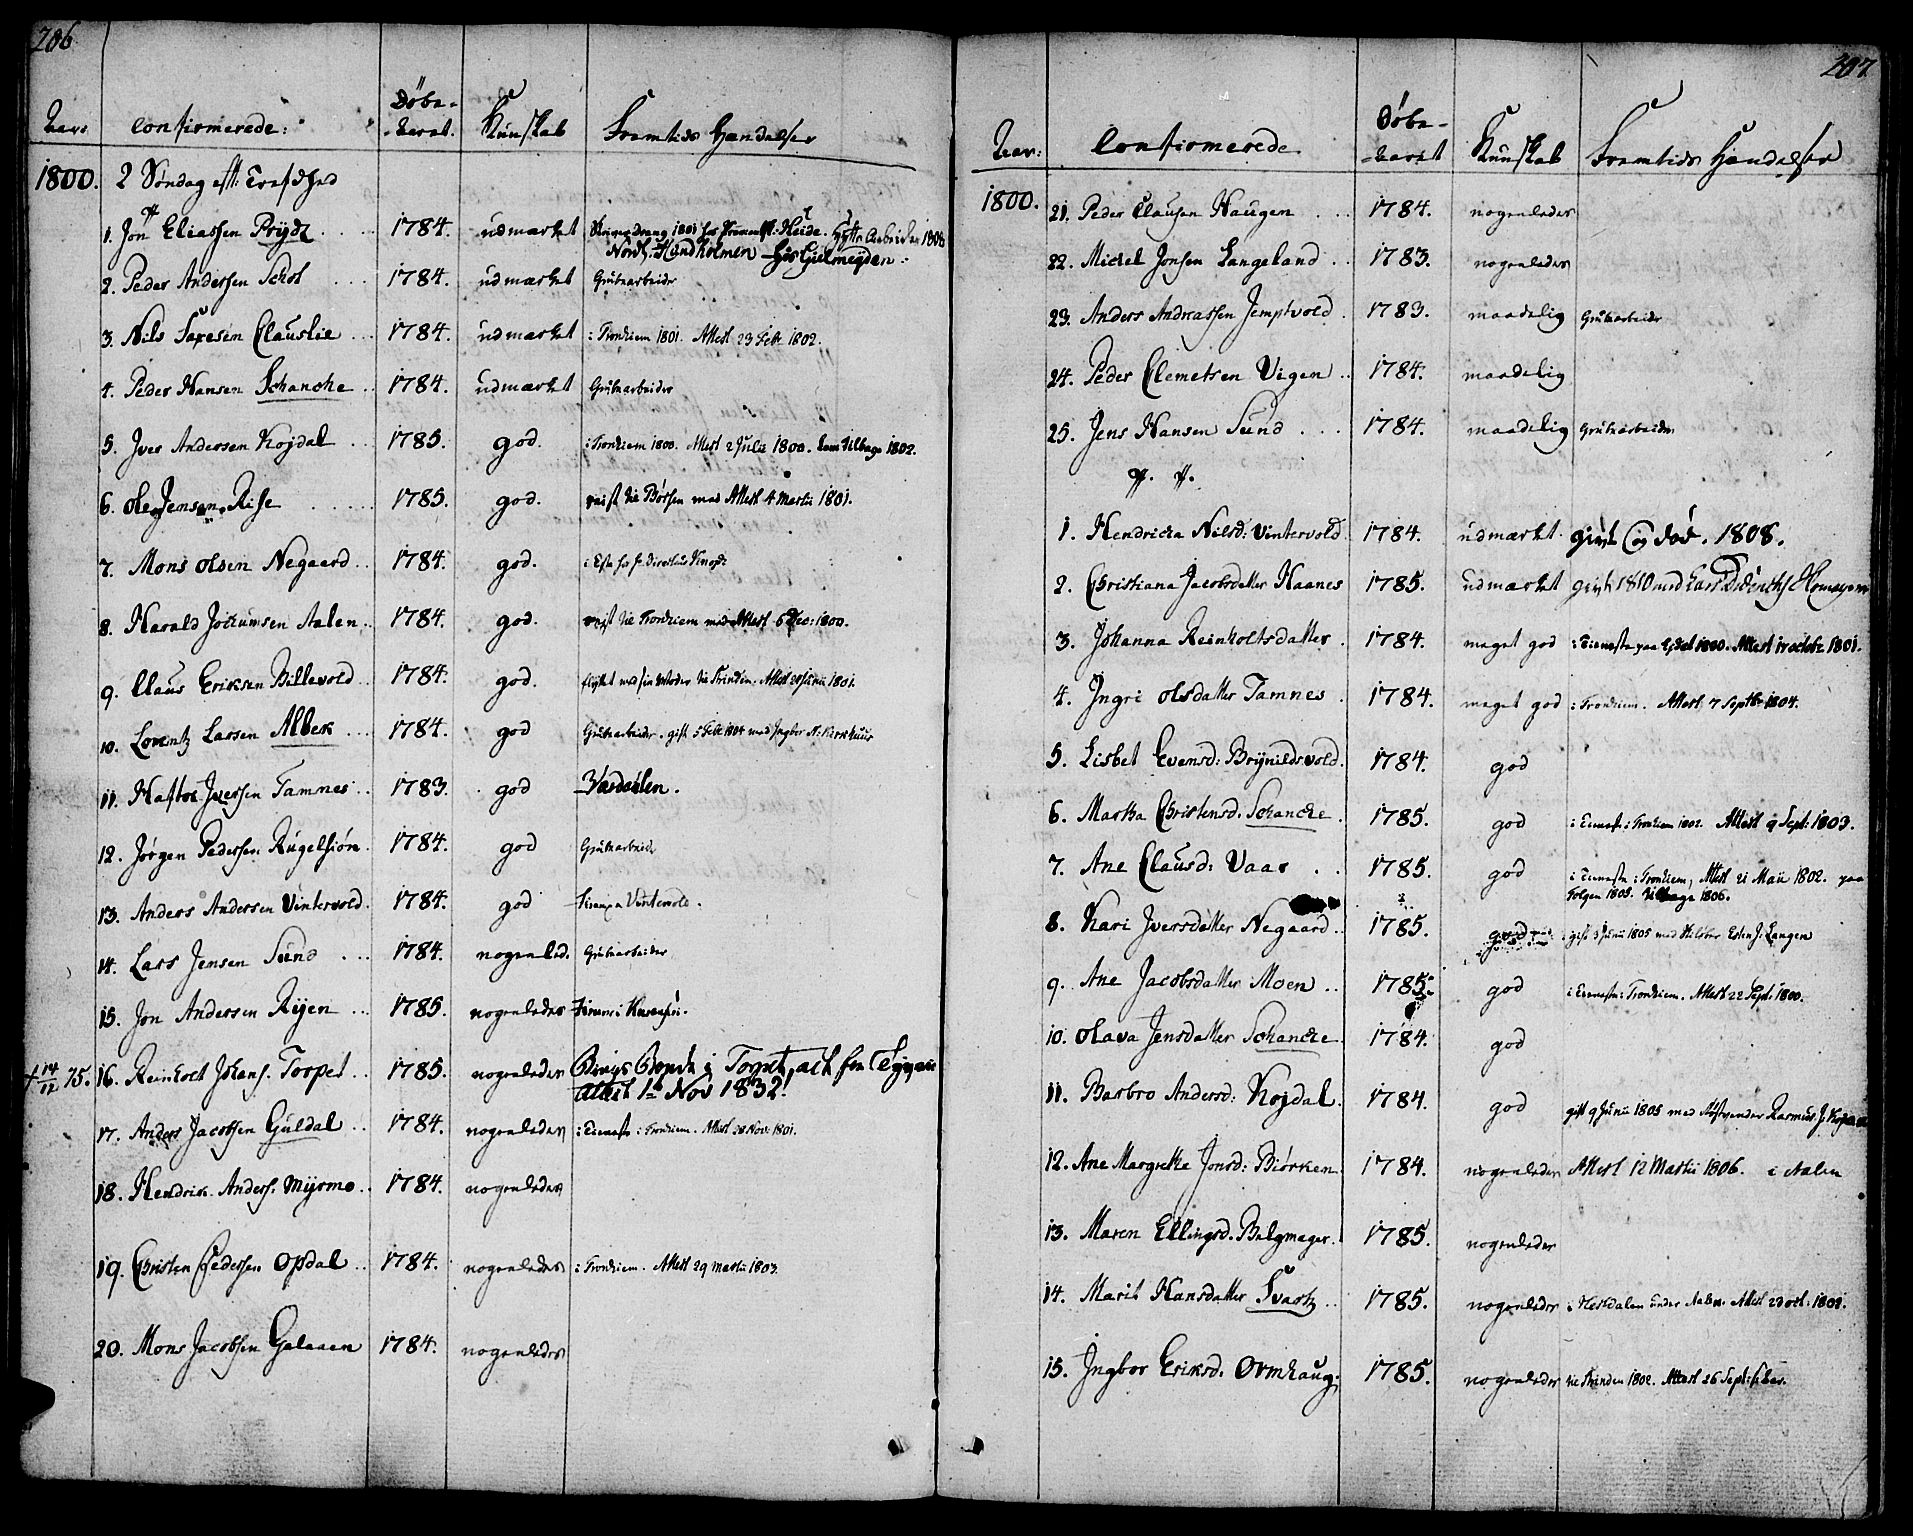 206
Aar: Confirmerede: Döbe-Aaret. Kundskab Fremtids Hændelser
1800. 2 Söndag eft:
1. Jon Eliassen Prÿdz 1784. udmærket 1801 Heide. 1808
Nordl. Hundholmen
2. Peder Andersen Schot 1784. udmærket Grubearbeider
3. Nils Clauslie 1784. udmærket i Trondhiem 1801. Attest 23 Febr 1802.
4. Peder Hansen Schancke 1784. udmærket Grubearbeider
5. Iver Andersen Kojdal 1785. god. i Trondhiem 1800. Attest 2 Julii 1800. kom tilbage 1802.
6. Ole Jensen Riise 1785. god. reist til Börsen med Attest 4 Martii 1801.
7. Mons Olsen Negaard 1784. god.
8. Harald Jochumsen Aalen 1784. god. reist til Trondhiem med Attest 6 Dec: 1800.
9. Claus Eriksen Billevold 1784. god. flyttet med sin Moder til Attest Junii 1801.
10. Lorentz Larsen Albek 1784. god Grubearbeider. gift 5 Febr 1804 med Ingbor
11. Iversen Tamnes 1783. god Værdalen.
12. Jörgen Pedersen Rugelsiön 1784. god Grubearbeider
13. Anders Andersen Vintervold 1784. god Vintervold.
14. Lars Jensen Sund 1784. nogenled. Grubearbeider
15. Jon Andersen Rÿen 1785. nogenledes
+ 14/12 75. 16. Reinholt Johans. Torpet 1785. nogenledes Torpet,
Attest 1te Nov 1832!
17. Anders Jacobsen Guldal 1784. nogenledes i Tieneste i Trondhiem. Attest 28 Nov: 1801.
18. Hendrik Anders. Mÿrmo 1784. nogenledes
19. Christen Pedersen Opdal 1784. nogenledes i Trondhiem. Attest 29 Martii 1803.
20. Mons Jacobsen Galaaen 1784. nogenledes
207
Aar: Confirmerede Döbe-Aaret Kundskab Fremtids Hændelser
1800. 21. Peder Clausen Haugen 1784. nogenledes
22. Michel Jonsen Langeland 1783. nogenledes
23. Anders Andreassen Jemptvold 1783. maadelig Grubearbeider
24. Peder Clemetsen Vigen 1784. maadelig
25. Jens Hansen Sund 1784. maadelig Grubearbeider
1. Hendricha Nilsd: Vintervold 1784. udmærket gift og död. 1808.
2. Christiana Jacobsdatter Haanes 1785. udmærket gift 1810 med Lars
3. Johanna Reinholtsdatter 1784. meget god i Tieneste paa 1800. Attest 17 octobr 1801.
4. Ingri Olsdatter Tamnes 1784. meget god i Trondhiem. Attest 7 Septbr 1804.
5. Lisbet Evensd: Brÿnildsvold 1784. god
6. Martha Christensd. Schancke 1785. god i Tieneste i Trondhiem 1802. Attest 9 Sept: 1803.
7. Ane Clausd: Vaar 1785. god i Tieneste i Trondhiem, Attest 21 Maii 1802. paa
1805. tilbage 1806.
8. Kari Iversdatter Negaard 1785. god gift Junii 1805 med Esten J. Langen
9. Ane Jacobsdatter Moen 1785. god i Tieneste i Trondhiem. Attest 22 Sept: 1800.
10. Olava Jensdatter Schancke 1784. god
11. Barbro Andersd: Kojdal 1784. god gift 9 Junii 1805 med Rasmus J.
12. Ane Margrethe Jonsd: Biörken 1784. nogenledes Attest 12 Martii 1806. i Aalen
13. Maren Ellingsd. Belgmager 1785. nogenledes
14. Marit Hansdatter Svartz 1785. nogenledes i Hestdalen under Aalen. Attest
15. Ingbor Eriksd. Ormhaug 1785. nogenledes til Strinden 1802. Attest 26 Sept: